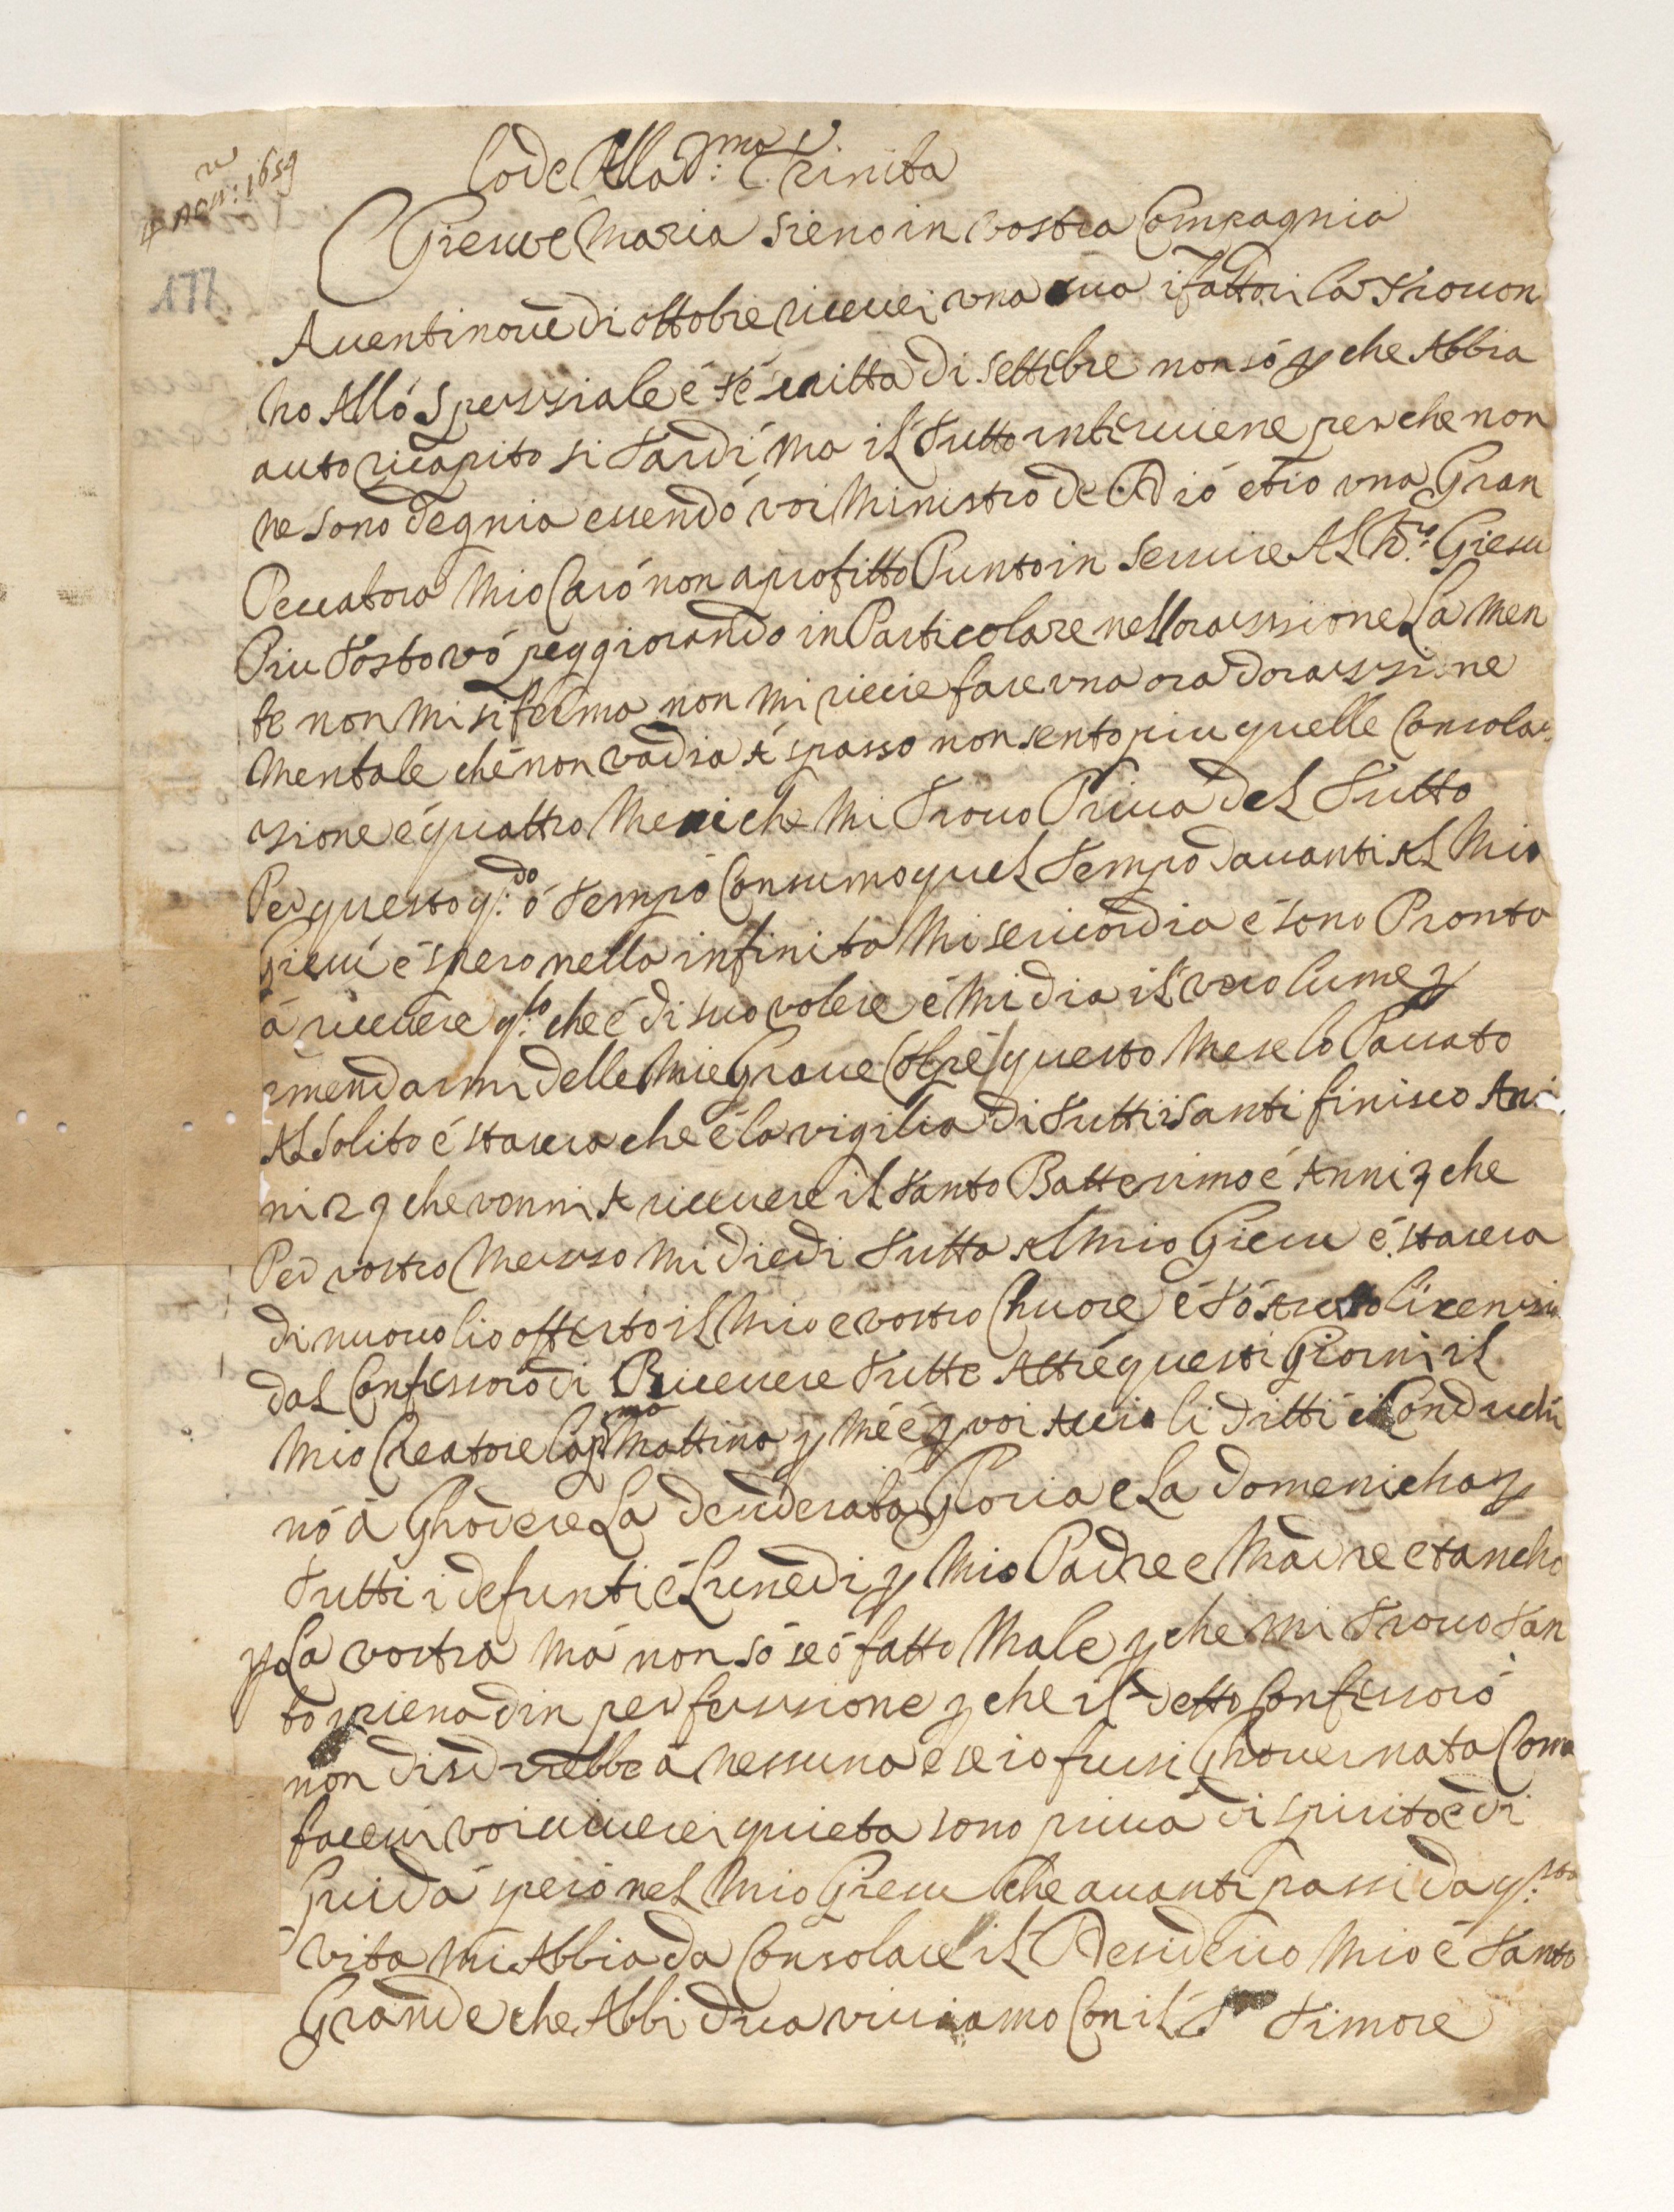 nov: 1659
177
Lode Alla S.ma Trinita
Giesu é Maria sieno in vostra Compagnia
A ventinove di ottobre riceuei una sua i fattori la trouon
ho Alló Spessiale é fé scritta di settebre non só p che Abbia
auto ricapito si tardi ma il tutto interuiene perche non
ne sono degnia essendó voi Ministro de Dió et io una Gran
Peccatora Mio Caró non aprofitto Punto in seruire Al N.ro Giesu
Piu tosto vó peggiorando in Particolare nell orassione La Men
te non mi si ferma non mi riecie fare una ora dorassione
Mentale ché non vadia A spasso non sento piu quelle Consola
ssione é quattro Mesi che Mi trouo Priua del tutto
Per questo q.do ó tempó Consumo quel tempo dauanti Al Mio
Giesu é spero nella infinita Misericordia é sono Pronta
á riceuere q.to che é di suo volere é Mi dia il vero lume p
imendarmi delle Mie Graue Colpe questo Mese ló Passato
Al solito é stasera che é la vigilia di tutti i Santi finisco An
ni 27 che vonni A riceuere il santo Battesimo é Anni 7 che
Per vostro Messo Mi diedi tutta Al mio Giesu é stasera
di nuouo lio offerto il Mio e vostro Chuore é ló Auto licensia
dal Confessoró di Riceuere tutte Attré questi Giorni il
Mio Creatore la p.ma Mattina p Mé é p voi Acció li ditti ci Conduchi
nó á Ghodere La desiderata Gloria e La domenicha p
tutti i defunti é Lunedi p Mio Padre e Madre et ancho
p La vostra Má non só se ó fatto Male p che mi trouo tan
to piena din perfessione p che il detto Confessoró
non disdirebbe á nessuna e se io fussi Ghouernata Come
faceui voi uiuerei quieta sono priua di spirito é di
Guida speró nel Mio Giesu che auanti passi da q.sta
vita Mi Abbia da Consolare il Desiderio Mio é tanto
Grande che Abbi dico viuiamo Con il S.to timore